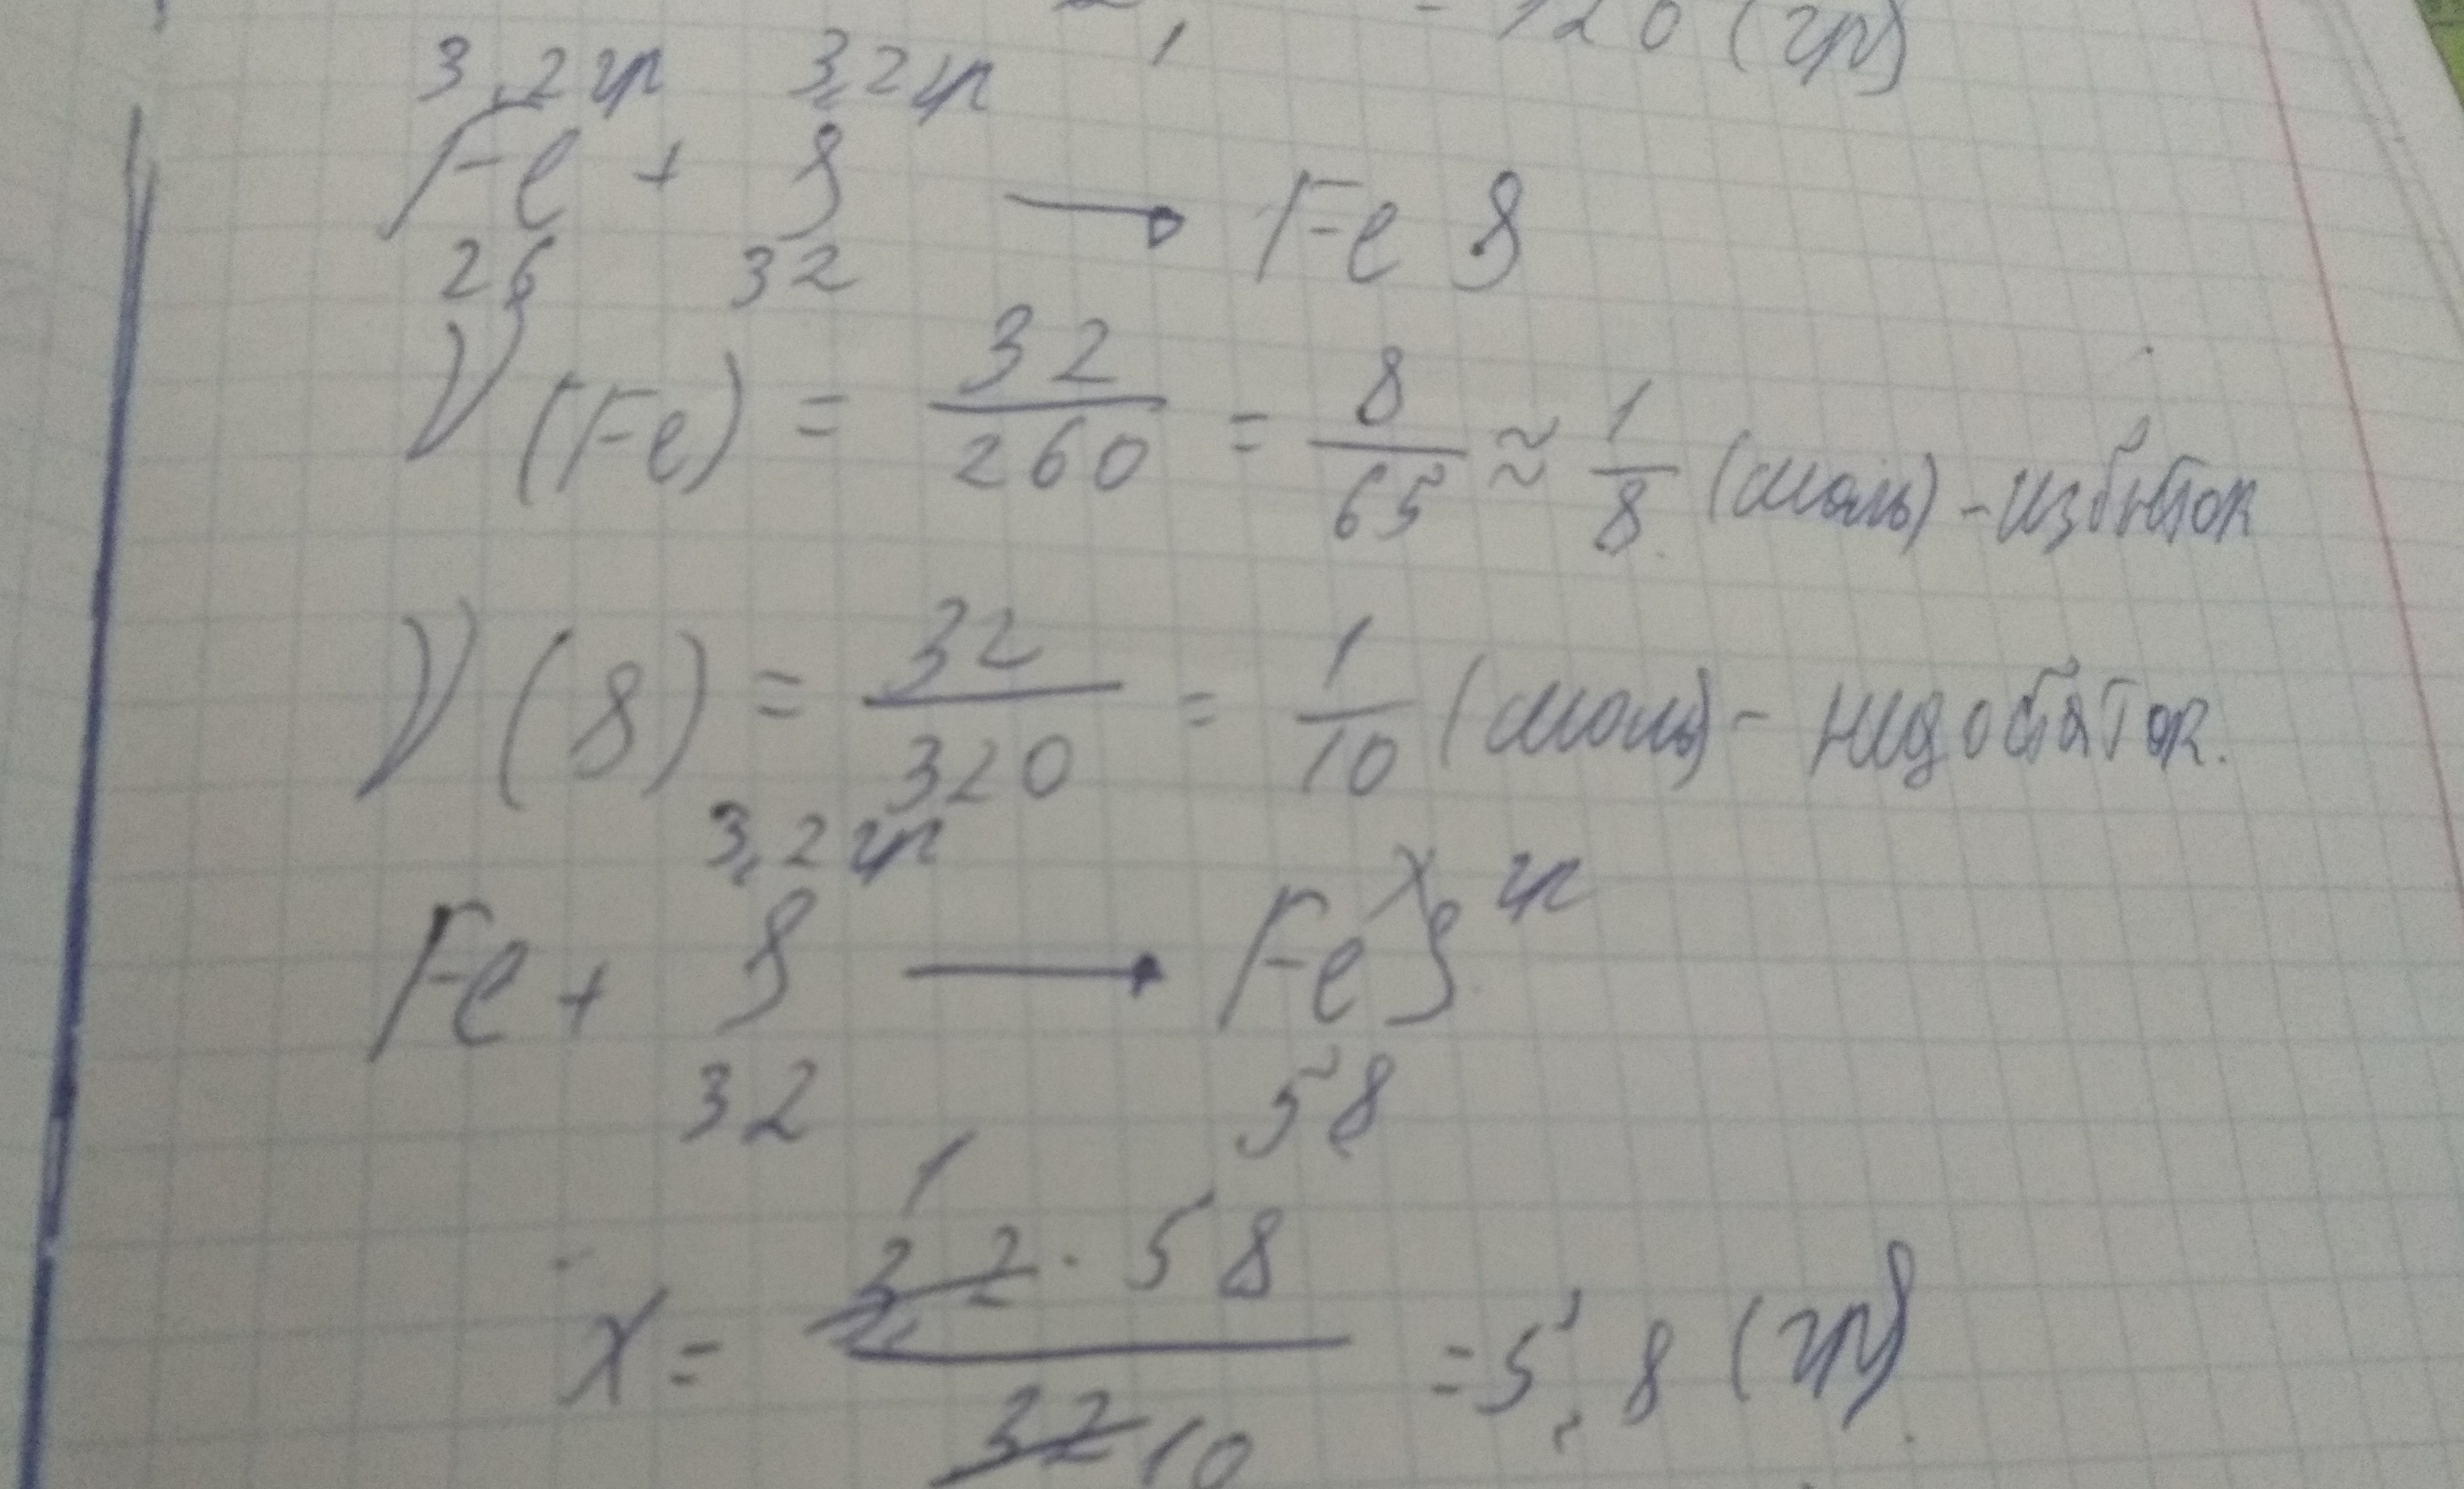 = 120 (гр)
3,2 гр 3,2 гр
Fe + S → Fe S
26 32
ν(Fe) = 32/260 = 8/65 ≈ 1/8 (моль) - избыток
ν(S) = 32/320 = 1/10 (моль) - недостаток.
3,2 гр x гр
Fe + S → FeS
32 58
1
x = 3,2 · 58 / 32 10 = 5,8 (гр).